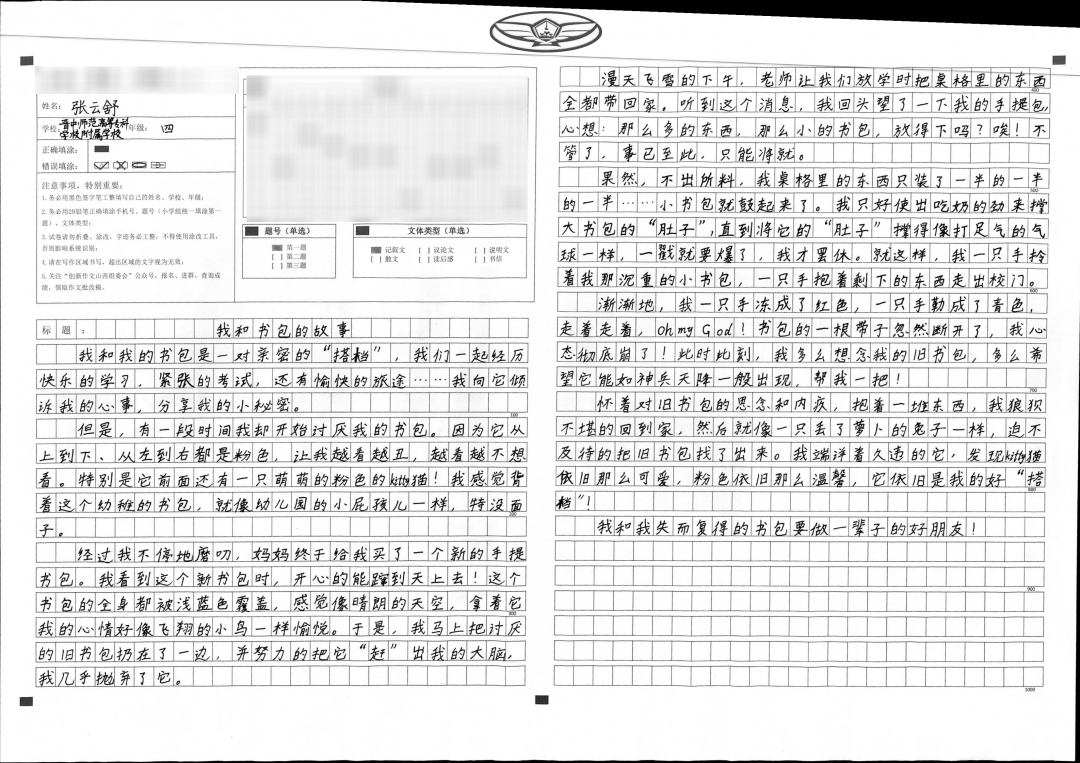 姓名： 张云舒
学校： 晋中师范高等专科
学校附属学校 年级： 四
正确填涂：
错误填涂：
注意事项，特别重要：
1.务必用黑色签字笔工整填写自己的姓名、学校、年级；
2.务必用2B铅笔正确填涂手机号、题号（小学组统一填涂第一
题）、文体类型；
3.试卷请勿折叠、涂改，字迹务必工整，不得使用涂改工具，
否则影响系统识别；
4.请在写作区域书写，超出区域的文字视为无效；
5.关注“创新作文山西组委会”公众号，报名、进群、查询成
绩，领取作文批改稿。
题号（单选）
第一题
[ ] 第二题
[ ] 第三题
文体类型（单选）
记叙文 [ ] 议论文 [ ] 说明文
[ ] 散文 [ ] 读后感 [ ] 书信
标 题 ： 我和书包的故事
我和我的书包是一对亲密的“搭档”，我们一起经历
快乐的学习，紧张的考试，还有愉快的旅途……我向它倾
诉我的心事，分享我的小秘密。
100
但是，有一段时间我却开始讨厌我的书包。因为它从
上到下、从左到右都是粉色，让我越看越丑，越看越不想
看。特别是它前面还有一只萌萌的粉色的kitty猫！我感觉背
着这个幼稚的书包，就像幼儿园的小屁孩儿一样，特没面
200
子。
经过我不停地磨叨，妈妈终于给我买了一个新的手提
书包。我看到这个新书包时，开心的能蹿到天上去！这个
书包的全身都被浅蓝色覆盖，感觉像晴朗的天空，拿着它
300
我的心情好像飞翔的小鸟一样愉悦。于是，我马上把讨厌
的旧书包扔在了一边，并努力的把它“赶”出我的大脑，
我几乎抛弃了它。
漫天飞雪的下午，老师让我们放学时把桌格里的东西
400
全都带回家。听到这个消息，我回头望了一下我的手提包，
心想：那么多的东西，那么小的书包，放得下吗？唉！不
管了，事已至此，只能将就。
果然，不出所料，我桌格里的东西只装了一半的一半
500
的一半……小书包就鼓起来了。我只好使出吃奶的劲来撑
大书包的“肚子”，直到将它的“肚子”撑得像打足气的气
球一样，一戳就要爆了，我才罢休。就这样，我一只手拎
着我那沉重的小书包，一只手抱着剩下的东西走出校门。
600
渐渐地，我一只手冻成了红色，一只手勒成了青色，
走着走着，oh my God！书包的一根带子忽然断开了，我心
态彻底崩了！此时此刻，我多么想念我的旧书包，多么希
望它能如神兵天降一般出现，帮我一把！
700
怀着对旧书包的思念和内疚，抱着一堆东西，我狼狈
不堪的回到家，然后就像一只丢了萝卜的兔子一样，迫不
及待的把旧书包找了出来。我端详着久违的它，发现kitty猫
依旧那么可爱，粉色依旧那么温馨，它依旧是我的好“搭
800
档”！
我和我失而复得的书包要做一辈子的好朋友！
900
1000